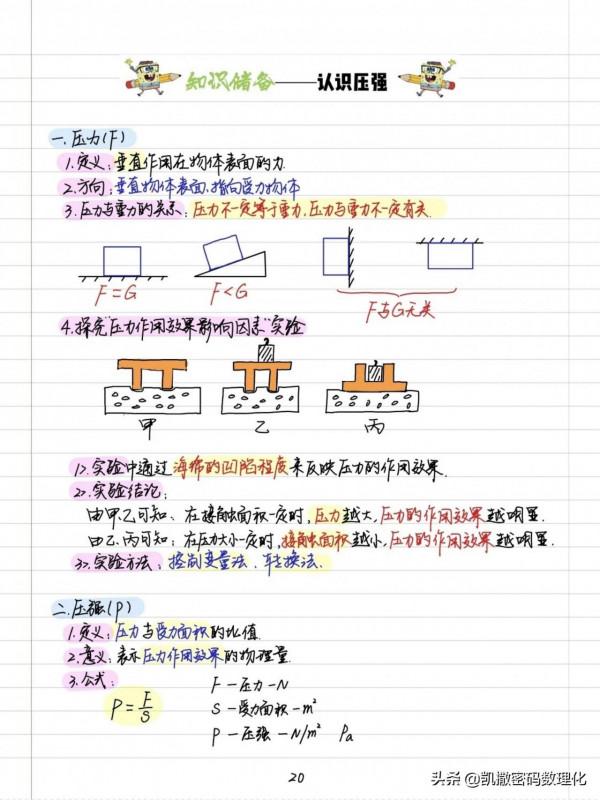 知识储备——认识压强
一.压力(F)
1.定义:垂直作用在物体表面的力
2.方向:垂直物体表面,指向受力物体
3.压力与重力的关系:压力不一定等于重力,压力与重力不一定有关.
F=G F<G F与G无关
4.探究"压力作用效果影响因素"实验
甲 乙 丙
1>.实验中通过海绵的凹陷程度来反映压力的作用效果.
2>.实验结论:
由甲乙可知、在接触面积一定时,压力越大,压力的作用效果越明显.
由乙.丙可知:在压力大小一定时,接触面积越小,压力的作用效果越明显.
3>.实验方法:控制变量法、转换法.
二.压强(P)
1.定义:压力与受力面积的比值.
2.意义:表示压力作用效果的物理量.
3.公式:
P=F/S
F—压力—N
S—受力面积—m²
P—压强—N/m² Pa
20
头条 @凯撒密码数理化